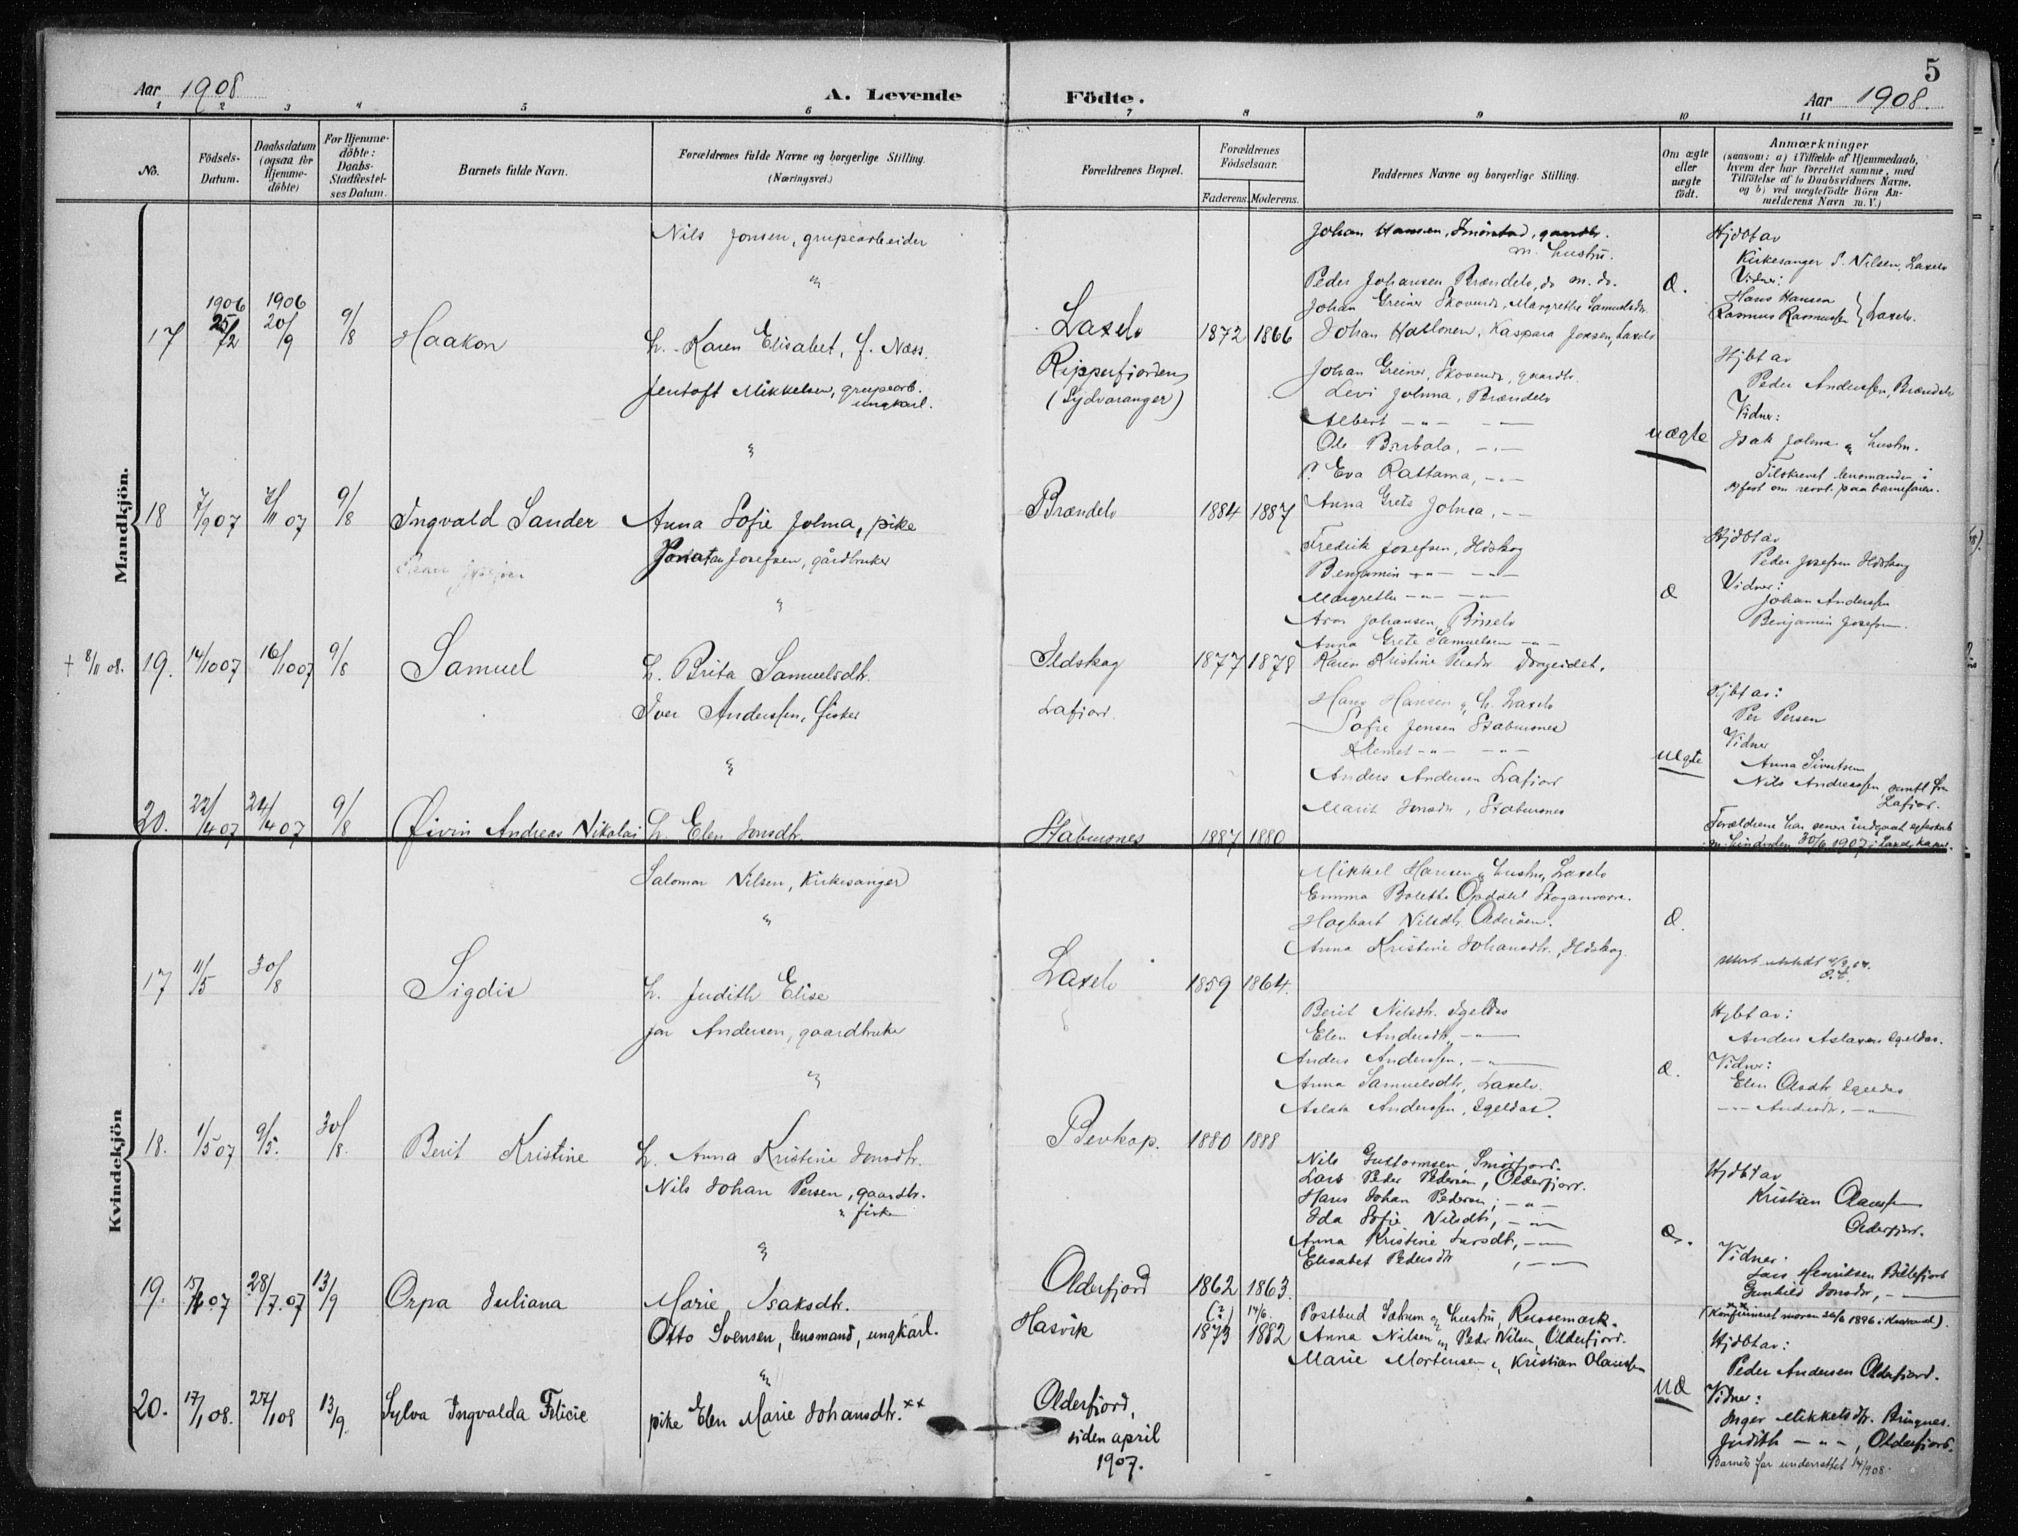 5
Aar 1908
A. Levende
Födte.
Aar 1908.
1 2 3 4 5 6 7 8 9 10 11
No.
Födsels-
Datum.
Daabsdatum
(ogsaa for
Hjemme-
döbte)
For Hjemme-
döbte:
Daabs-
Stadfæstel-
ses Datum.
Barnets fulde Navn.
Forældrenes fulde Navne og borgerlige Stilling.
(Næringsvei.)
Forældrenes Bopæl.
Forældrenes
Födselsaar.
Faderens. Moderens.
Faddernes Navne og borgerlige Stilling.
Om ægte
eller
uægte
födt.
Anmærkninger
(saasom: a) i Tilfælde af Hjemmedaab,
hvem der har forrettet samme, med
Tilföielse af to Daabsvidners Navne,
og b) ved uægtefödte Börn An-
melderens Navn m. V.)
Mandkjön.
17
1906
25/2
1906
20/9
9/8
Haakon
Nils Jonsen, grupearbeider
"
h. Karen Elisabet, f. Næss.
Laxelv
1872 1866
Johan Hansen, gaardbr.
m. hustru.
Peder Johansen Brændelv, do m. do.
Johan Greiner Skovnæs, Margrethe Samuelsdtr.
Johan Hallonen, Kaspara Jensen, Laxelv
Æ.
Hjdbt av
Kirkesanger S. Nilsen, Laxelv
Vidner:
Hans Hansen
Rasmus Rasmussen } Laxelv.
18
7/9 07
7/11 07
9/8
Ingvald Sander
Jentoft Mikkelsen, grupearb.
ungkarl.
"
Anna Sofie Jolma, pike
Ripperfjorden
(Sydvaranger)
Brændelv
1884 1887
Johan Greiner, Skovnæs, gaardbr.
Levi Jolma, Brændelv
Albert -"- -"-
Ole Barbala, -"-
P. Eva Rattama, -"-
Anna Grete Jolma, -"-
uægte
Hjbt av
Peder Anderssen, Brændelv
Vidner:
Isak Jolma " hustru.
Tilskrevet lensmanden i
19.
+ 8/11 08.
14/10 07
16/10 07
9/8
Samuel
Jonatan Josefsen, gårdbruker
"
h. Brita Samuelsdtr.
Ildskog
1877 1878
Fredrik Josefsen, Ildskog
Benjamin -"- -"-
Margrethe -"- -"-
Aron Johansen,
Anna Grete Samuelsen -"-
Karen Kristine Pedersdtr
Æ
Hjdbt av
Peder Josefsen Ildskog
Vidner:
Johan Anderssen
Benjamin Josefsen.
20.
22/4 07
24/4 07
9/8
Øivin Andreas Nikolai
Iver Anderssen, fisker
"
h. Elen Jonsdtr.
Lafjord.
Stabursnes
1887 1880
Hans Hansen " h. Laxelv
Sofie Jensen Stabursnes
Klemet -"- -"-
Anders Andersen Lafjord
Marit Jonsdtr, Stabursnes
Uægte
Hjbt av:
Per Persen
Vidner
Anna Sivertsen
Nils Andreassen, samtl. fra
Lafjord.
Forældrene har senere indgaaet egteskab
Kvindekjön
17
11/5
30/8
Sigdis
Salomon Nilsen, Kirkesanger
"
h. Judith Elise
Laxelv
1859 1864.
Mikkel Hansen " hustru, Laxelv
Emma Bolette Opdahl Skoganvarre.
Hagbart Nilsdtr. Olderøen.
Anna Kristine Johansdtr, Ildskog
Æ.
18.
1/5 07
9/5.
30/8.
Berit Kristine
Jon Andersen, gaardbruker
"
h. Anna Kristine Jonsdtr.
Bevkop.
1880 1888
Berit Nilsdtr. Igeldas
Elen Andersdtr, -"-
Anders Anderssen, -"-
Anna Samuelsdtr, Laxelv.
Aslak Anderssen, Igeldas.
Æ.
Hjbt av:
Anders Aslaksen Igeldas.
Vidner:
Elen Olsdtr Igeldas
-"- Andersdtr, -"-
19.
07
28/7.07
13/9
Orpa Juliana
Nils Johan Persen, gaardbr.
" fisker
"
Marie Isaksdtr.
Olderfjord
1862 1863.
Nils Guttormsen, Smørfjord.
Lars Peder Pedersen, Olderfjord.
Hans Johan Pedersen, -"-
Ida Sofie Nilsdtr, -"-
Anna Kristine Larsdtr, -"-
Elisabet Pedersdtr, -"-
Æ.
Hjdbt av
Kristian Olaussen
Olderfjord.
Vidner:
Lars Henriksen Billefjord
Gunhild Jonsdtr, -"-
20.
17/1 08.
27/1 08
13/9.
Sylva Ingvalda Felicie
Otto Svensen, lensmand, ungkarl.
"
pike Elen Marie Johansdtr. xx
Hasvik
Olderfjord,
siden april
1907.
(?) 14/6.
1873 1882
Postbud Jakum og hustru Russemark.
Anna Nilsen " Peder Nilsen, Olderfjord.
Marie Mortensen " Kristian Olaussen
UÆ
xx
(Konfirmert moren 26/6 1896 i Kistrand).
Hjdbt av:
Peder Andersen Olderfjord.
Vidner:
Inger Mikkelsdtr. Bringnes.
Judith -"-, Olderfjord.
Barnets far underrettet 14/9 08.